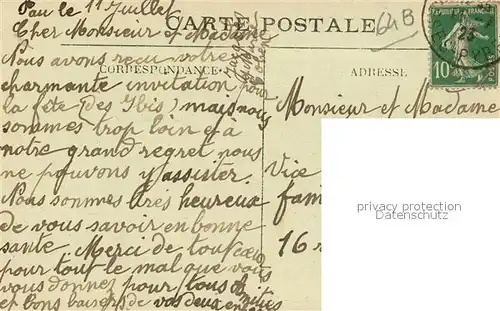 Pau le 11 Juillet
CARTE POSTALE
64B
Cher Monsieur et Madame
Nous avons reçu votre
CORRESPONDANCE
ADRESSE
charmante invitation pour
la fête (des Ibis) mais nous
sommes trop loin et à
notre grand regret nous
ne pouvons y assister.
Nous sommes très heureux
de vous savoir en bonne
santé. Merci de tout cœur
pour tout le mal que vous
vous donnez pour tous
et bons baisers de vos deux
10
Monsieur et Madame
Vice
fam
16
privacy protection
Datenschutz